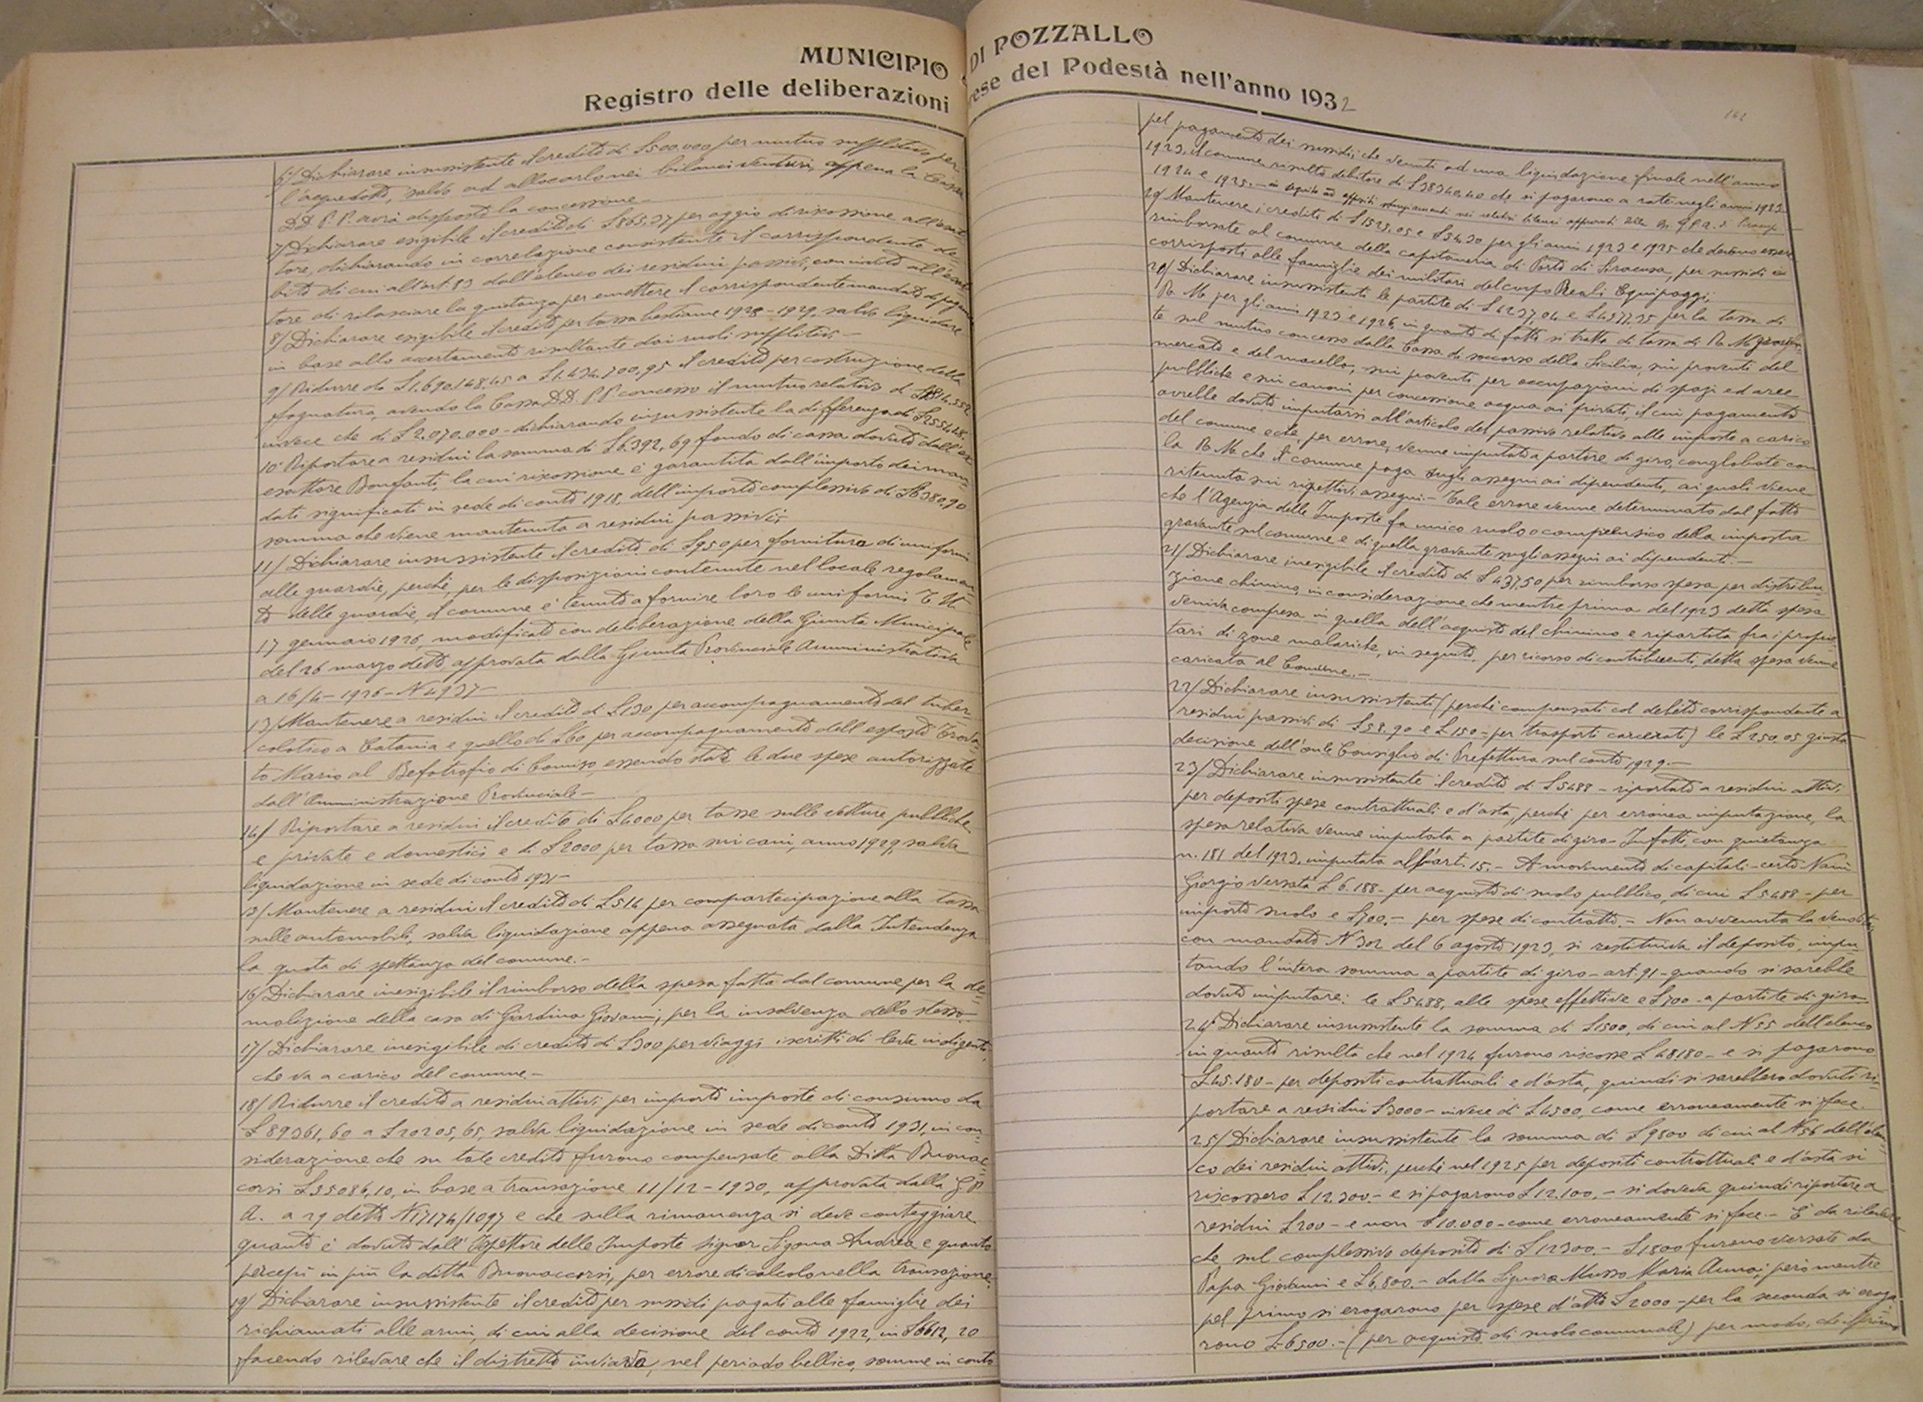 MUNICIPIO DI POZZALLO
Registro delle deliberazioni prese del Podestà nell'anno 1932
6/ Dichiarare insussistente il credito di £500.000 per mutuo suppletivo per
l'acquedotto, salvo ad allocarlo nei bilanci venturi, appena la Cassa
DD. P.P. avrà disposto la concessione.-
7/ Dichiarare esigibile il credito di £865.37 per aggio di riscossione all'esat-
tore, dichiarando in correlazione consistente il corrispondente de-
bito di cui all'art. 83 dell'elenco dei residui passivi, con invito all'esat-
tore di rilasciare la quietanza per emettere il corrispondente mandato di pagam.
8/ Dichiarare esigibile il credito per tassa bestiame 1928-1929, salvo liquidare
in base allo accertamento risultante dai ruoli suppletivi.-
9/ Ridurre da £1.690.148,45 a £1.434.700,95 il credito per costruzione della
fognatura, avendo la Cassa DD. P.P. concesso il mutuo relativo di
invece che di £2.070.000 - dichiarando insussistente la differenza di £255448.-
10° Riportare a residui la somma di £6392,69 fondo di cassa dovuto dall'ex
esattore Bonfanti, la cui riscossione è garantita dall'importo dei man-
dati significati in sede di conto 1918, dell'importo complessivo di £6380,90
somma che viene mantenuta a residui passivi;
11/ Dichiarare insussistente il credito di £950 per fornitura di uniformi
alle guardie, perchè, per le disposizioni contenute nel locale regolamen-
to delle guardie, il comune è tenuto a fornire loro le uniformi
17 gennaio 1926, modificato con deliberazione della Giunta Municipale
del 26 marzo detto, approvata dalla Giunta Provinciale Amministrativa
a 16/4-1926-N.4937-
13/ Mantenere a residui il credito di £130 per accompagnamento del tuber-
colotico a Catania e quello di £60 per accompagnamento dell'esposto Trova-
to Mario al Befotrofio di Comiso, essendo state le due spese autorizzate
dall'Amministrazione Provinciale.-
14/ Riportare a residui il credito di £4000 per tasse sulle vetture pubbliche
e private e domestici e di £2000 per tassa sui cani, anno 1929, salva
liquidazione in sede di conto 1931-
15/ Mantenere a residui il credito di £514 per compartecipazione alla tassa
sulle automobili, salva liquidazione appena assegnata dalla Intendenza
la quota di spettanza del comune.-
16/ Dichiarare inesigibile il rimborso della spesa fatta dal comune per la de-
molizione della casa di Giardina Giovanni, per la insolvenza dello stesso.-
17/ Dichiarare inesigibile di credito di £300 per viaggi iscritti di leva indigenti
che va a carico del comune.-
18/ Ridurre il credito a residui attivi per importo imposte di consumo da
£89361,60 a £20205,65, salva liquidazione in sede di conto 1931, in con-
siderazione che su tale credito furono compensate alla Ditta Buonac-
corsi £55086,10, in base a transazione 11/12-1930, approvata dalla G.P.
A. a 29 detto N.17174/1097 e che sulla rimanenza si deve conteggiare
quanto è dovuto dall'Ispettore delle Imposte signor Sigona Andrea e quanto
percepì in più la ditta Buonaccorsi, per errore di calcolo nella transazione.
19/ Dichiarare insussistente il credito per sussidi pagati alle famiglie dei
richiamati alle armi, di cui alla decisione del conto 1922, in £6612,20
facendo rilevare che il distretto inviava, nel periodo bellico, somme in conto
pel pagamento dei sussidi, che venuto ad una liquidazione finale nell'anno
1923, il comune risultò debitore di £38340.40 che si pagarono a rate negli anni 1923
1924 e 1925.- in seguito ad appositi stanziamenti nei relativi bilanci approvati dalla On. G.P.A.
29 Mantenere i credito di £1523,05 e £54.30 per gli anni 1923 e 1925 che devono essere
rimborsate al comune della capitaneria di Porto di Siracusa, per sussidi
corrisposti alle famiglie dei militari del corpo Reali Equipaggi.
20/ Dichiarare insussistenti le partite di £4237,04 e £4577.35 per la tassa di
R. M. per gli anni 1923 e 1926, in quanto di fatto si tratta di tassa di R. M. gravan-
te sul mutuo concesso dalla Cassa di soccorso della Sicilia, sui proventi del
mercato e del macello, sui proventi per occupazioni di spazi ed aree
pubbliche e sui canoni per concessione acqua ai privati, il cui pagamento
avrebbe dovuto imputarsi all'articolo del passivo relativo alle imposte a carico
del comune e che, per errore, venne imputato a partite di giro, conglobate con
la R. M. che il comune paga sugli assegni ai dipendenti, ai quali viene
ritenuta sui rispettivi assegni.- Tale errore venne determinato dal fatto
che l'Agenzia delle Imposte fa unico ruolo comprensivo della imposta
gravante sul comune e di quella gravante sugli assegni ai dipendenti.-
21/ Dichiarare inesigibile il credito di £437,50 per rimborso spesa per distribu-
zione chinino, in considerazione che mentre prima del 1923 detta spesa
veniva compresa in quella dell'acquisto del chinino e ripartita fra i proprie-
tari di zone malariche, in seguito, per ricorso di contribuenti, detta spesa venne
caricata al Comune.-
22/ Dichiarare insussistenti (perchè compensati col debito corrispondente a
residui passivi di £58.90 e £150- per trasporti carcerati) le £250.05 giusta
decisione dell'on.le Consiglio di Prefettura sul conto 1929.-
23/ Dichiarare insussistente il credito di £5488 - riportato a residui attivi,
per depositi spese contrattuali e d'asta, perchè per erronea imputazione, la
spesa relativa venne imputata a partite di giro- Infatti, con quietanza
n. 181 del 1923, imputata all'art. 15.- A movimento di capitali- certo Nani
Giorgio versata £6.188- per acquisto di suolo pubblico, di cui £5488- per
importo suolo e £700.- per spese di contratto.- Non avvenuta la vendita,
con mandato N.302 del 6 agosto 1923, si restituiva il deposito, impu-
tando l'intera somma a partite di giro- art. 91- quando si sarebbe
dovuto imputare: le £5488, alle spese effettive e £700- a partite di giro.-
24° Dichiarare insussistente la somma di £1500, di cui al N.55 dell'elenco
in quanto risulta che nel 1924 furono riscosse £48180- e si pagarono
£45.180- per depositi contrattuali e d'asta, quindi si sarebbero dovuti ri-
portare a residui £3000- invece di £4500, come erroneamente si fece.
25/ Dichiarare insussistente la somma di £9800 di cui al N.56 dell'elen-
co dei residui attivi, perchè nel 1925 per depositi contrattuali e d'asta si
riscossero £12.300- e si pagarono £12.100.- si doveva quindi riportare a
residui £200- e non £10.000- come erroneamente si fece.- E' da rilevare
che sul complessivo deposito di £12300.- £1800 furono versate da
Papa Giovanni e £6,500.- dalla Signora Musso Maria Anna; però mentre
pel primo si erogarono per spese d'atto £2000- per la seconda si eroga-
rono £6500.- (per acquisto di suolo comunale) per modo, che il primo